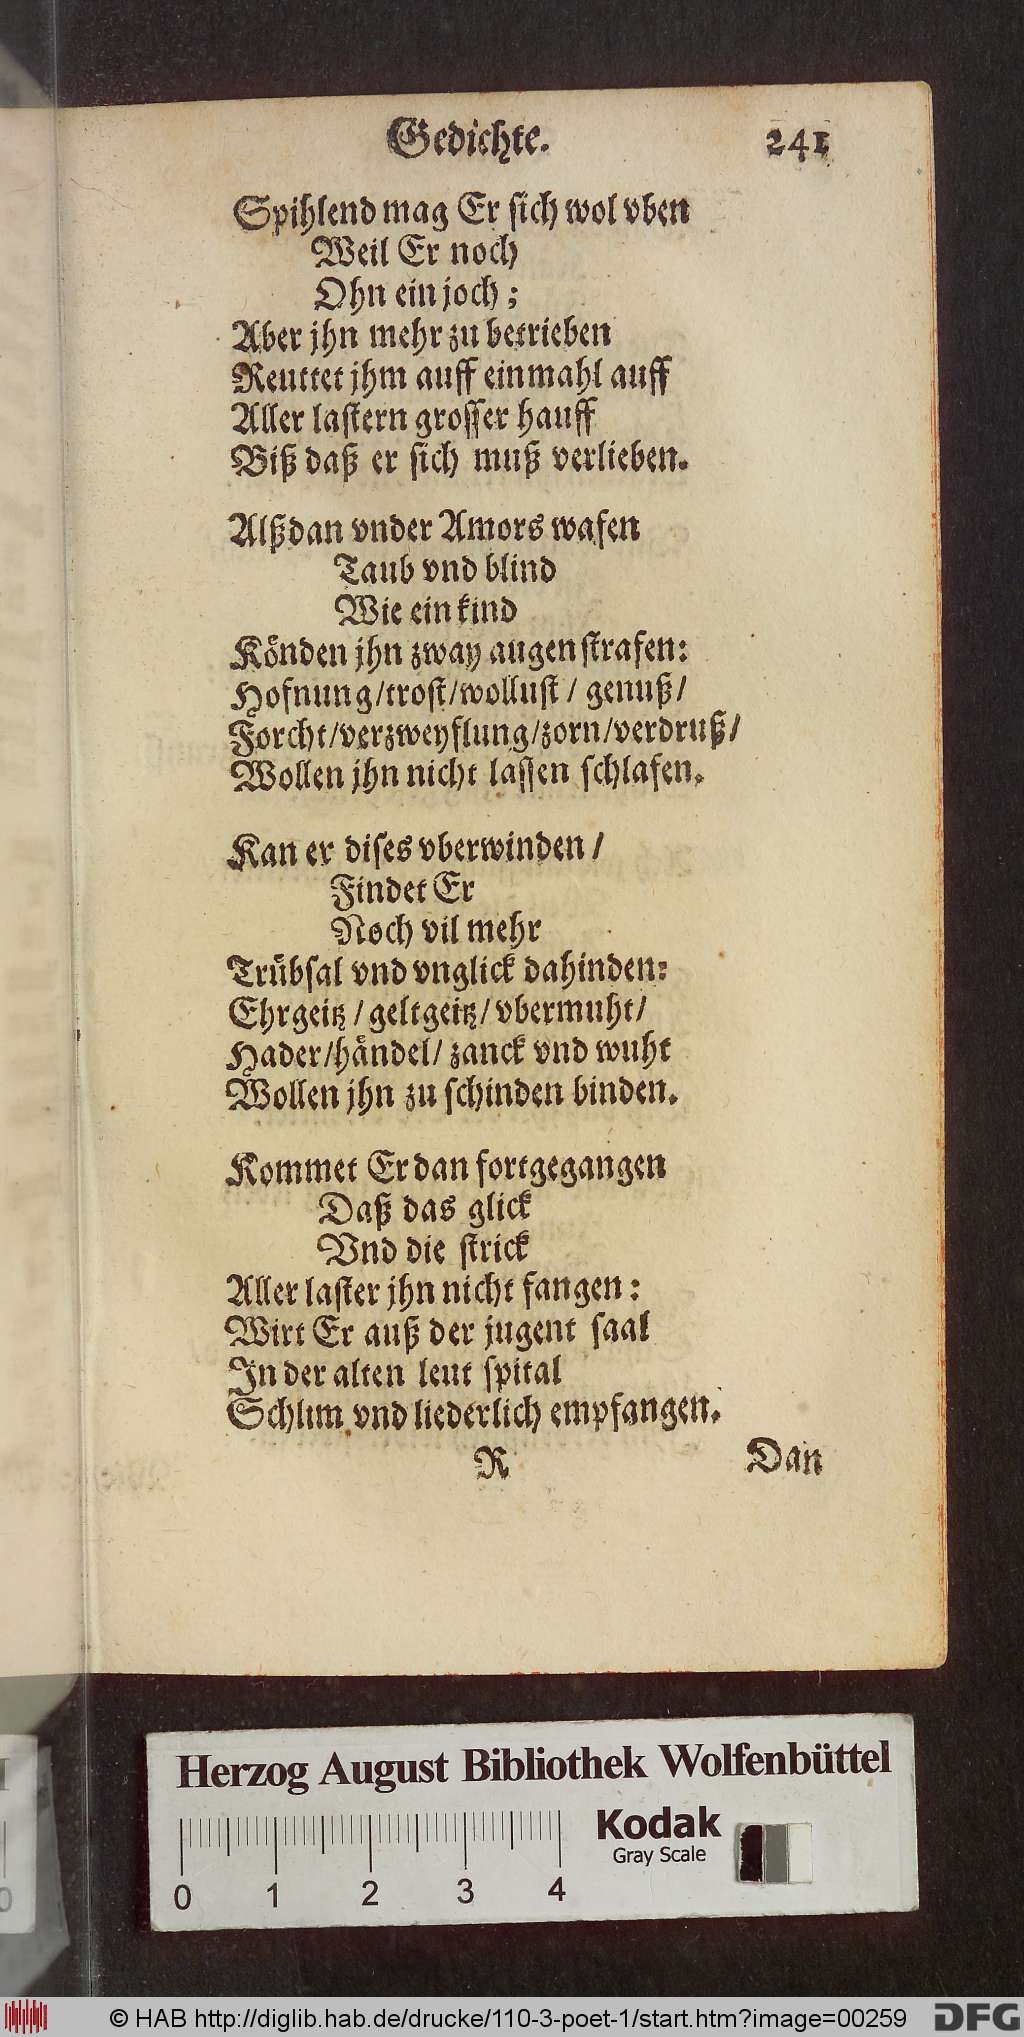 Gedichte. 241
Spihlend mag Er sich wol vben
Weil Er noch
Ohn ein joch ;
Aber jhn mehr zu betrieben
Reuttet jhm auff einmahl auff
Aller lastern grosser hauff
Biß daß er sich muß verlieben.
Alßdan vnder Amors wafen
Taub vnd blind
Wie ein kind
Könden jhn zway augen strafen:
Hofnung/trost/wollust / genuß/
Forcht/verzweyflung/zorn/verdruß/
Wollen jhn nicht lassen schlafen.
Kan er dises vberwinden /
Findet Er
Noch vil mehr
Trübsal vnd vnglick dahinden:
Ehrgeitz / geltgeitz/ vbermuht/
Hader/händel/ zanck vnd wuht
Wollen jhn zu schinden binden.
Kommet Er dan fortgegangen
Daß das glick
Vnd die strick
Aller laster jhn nicht fangen :
Wirt Er auß der jugent saal
In der alten leut spital
Schlim vnd liederlich empfangen.
R Dan
Herzog August Bibliothek Wolfenbüttel
Kodak
Gray Scale
0 1 2 3 4
© HAB http://diglib.hab.de/drucke/110-3-poet-1/start.htm?image=00259
DFG